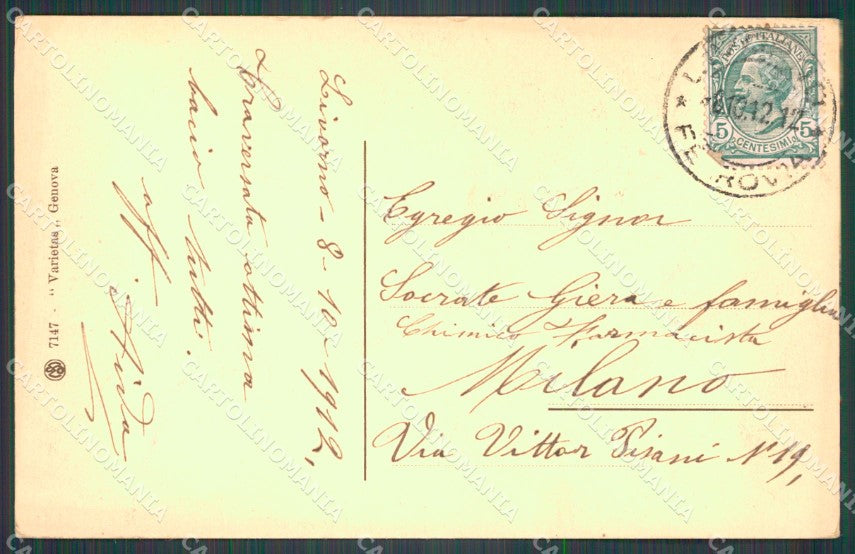 Livorno - 8-10-1912.
Traversata ottima
bacio tutti.
aff Aida
Egregio Signor
Socrate Giera e famiglia
Chimico Farmacista
Milano
Via Vittor Pisani N° 19,
POSTE ITALIANE
5 5
CENTESIMI
FERROVIA
7147 - "Varietas" Genova
CARTOLINOMANIA